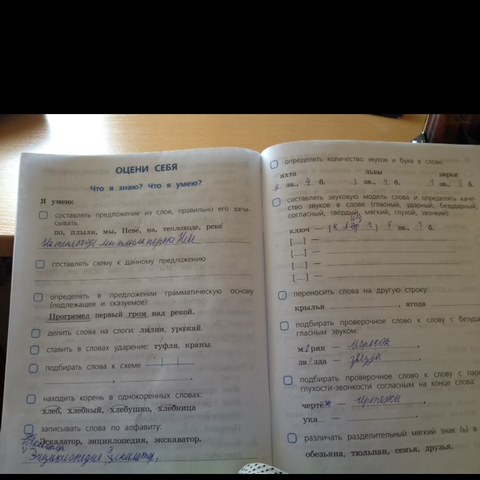 ОЦЕНИ СЕБЯ
Что я знаю? Что я умею?
Я умею:
составлять предложение из слов, правильно его запи-
сывать.
по, плыли, мы, Неве, на, теплоходе, реке
На теплоходе мы плыли по реке Неве
составлять схему к данному предложению
определять в предложении грамматическую основу
(подлежащее и сказуемое):
Прогремел первый гром над рекой.
делить слова на слоги: лилия, урожай.
ставить в словах ударение: туфля, краны.
подбирать слова к схеме
находить корень в однокоренных словах:
хлеб, хлебный, хлебушко, хлебница
записывать слова по алфавиту:
Эскалатор, энциклопедия, экскаватор.
Энциклопедия эскалатор,
определять количество звуков и букв в слове:
яхта львы перья
зв., 4 б. 3 зв., 4 б. зв., б.
составлять звуковую модель слова и определять каче-
ство звуков в слове (гласный, ударный, безударный,
согласный, твёрдый, мягкий, глухой, звонкий)
ключ — зв., б.
[...] —
[...] —
[...] —
[...] —
переносить слова на другую строку:
крылья , ягода
подбирать проверочное слово к слову с безуда
гласным звуком:
м ряк —
зв зда — звёзды
подбирать проверочное слово к слову с пар
глухости-звонкости согласным на конце слова
чертёж — чертежи
ука —
различать разделительный мягкий знак (ь) в
обезьяна, тюльпан, семья, друзья.